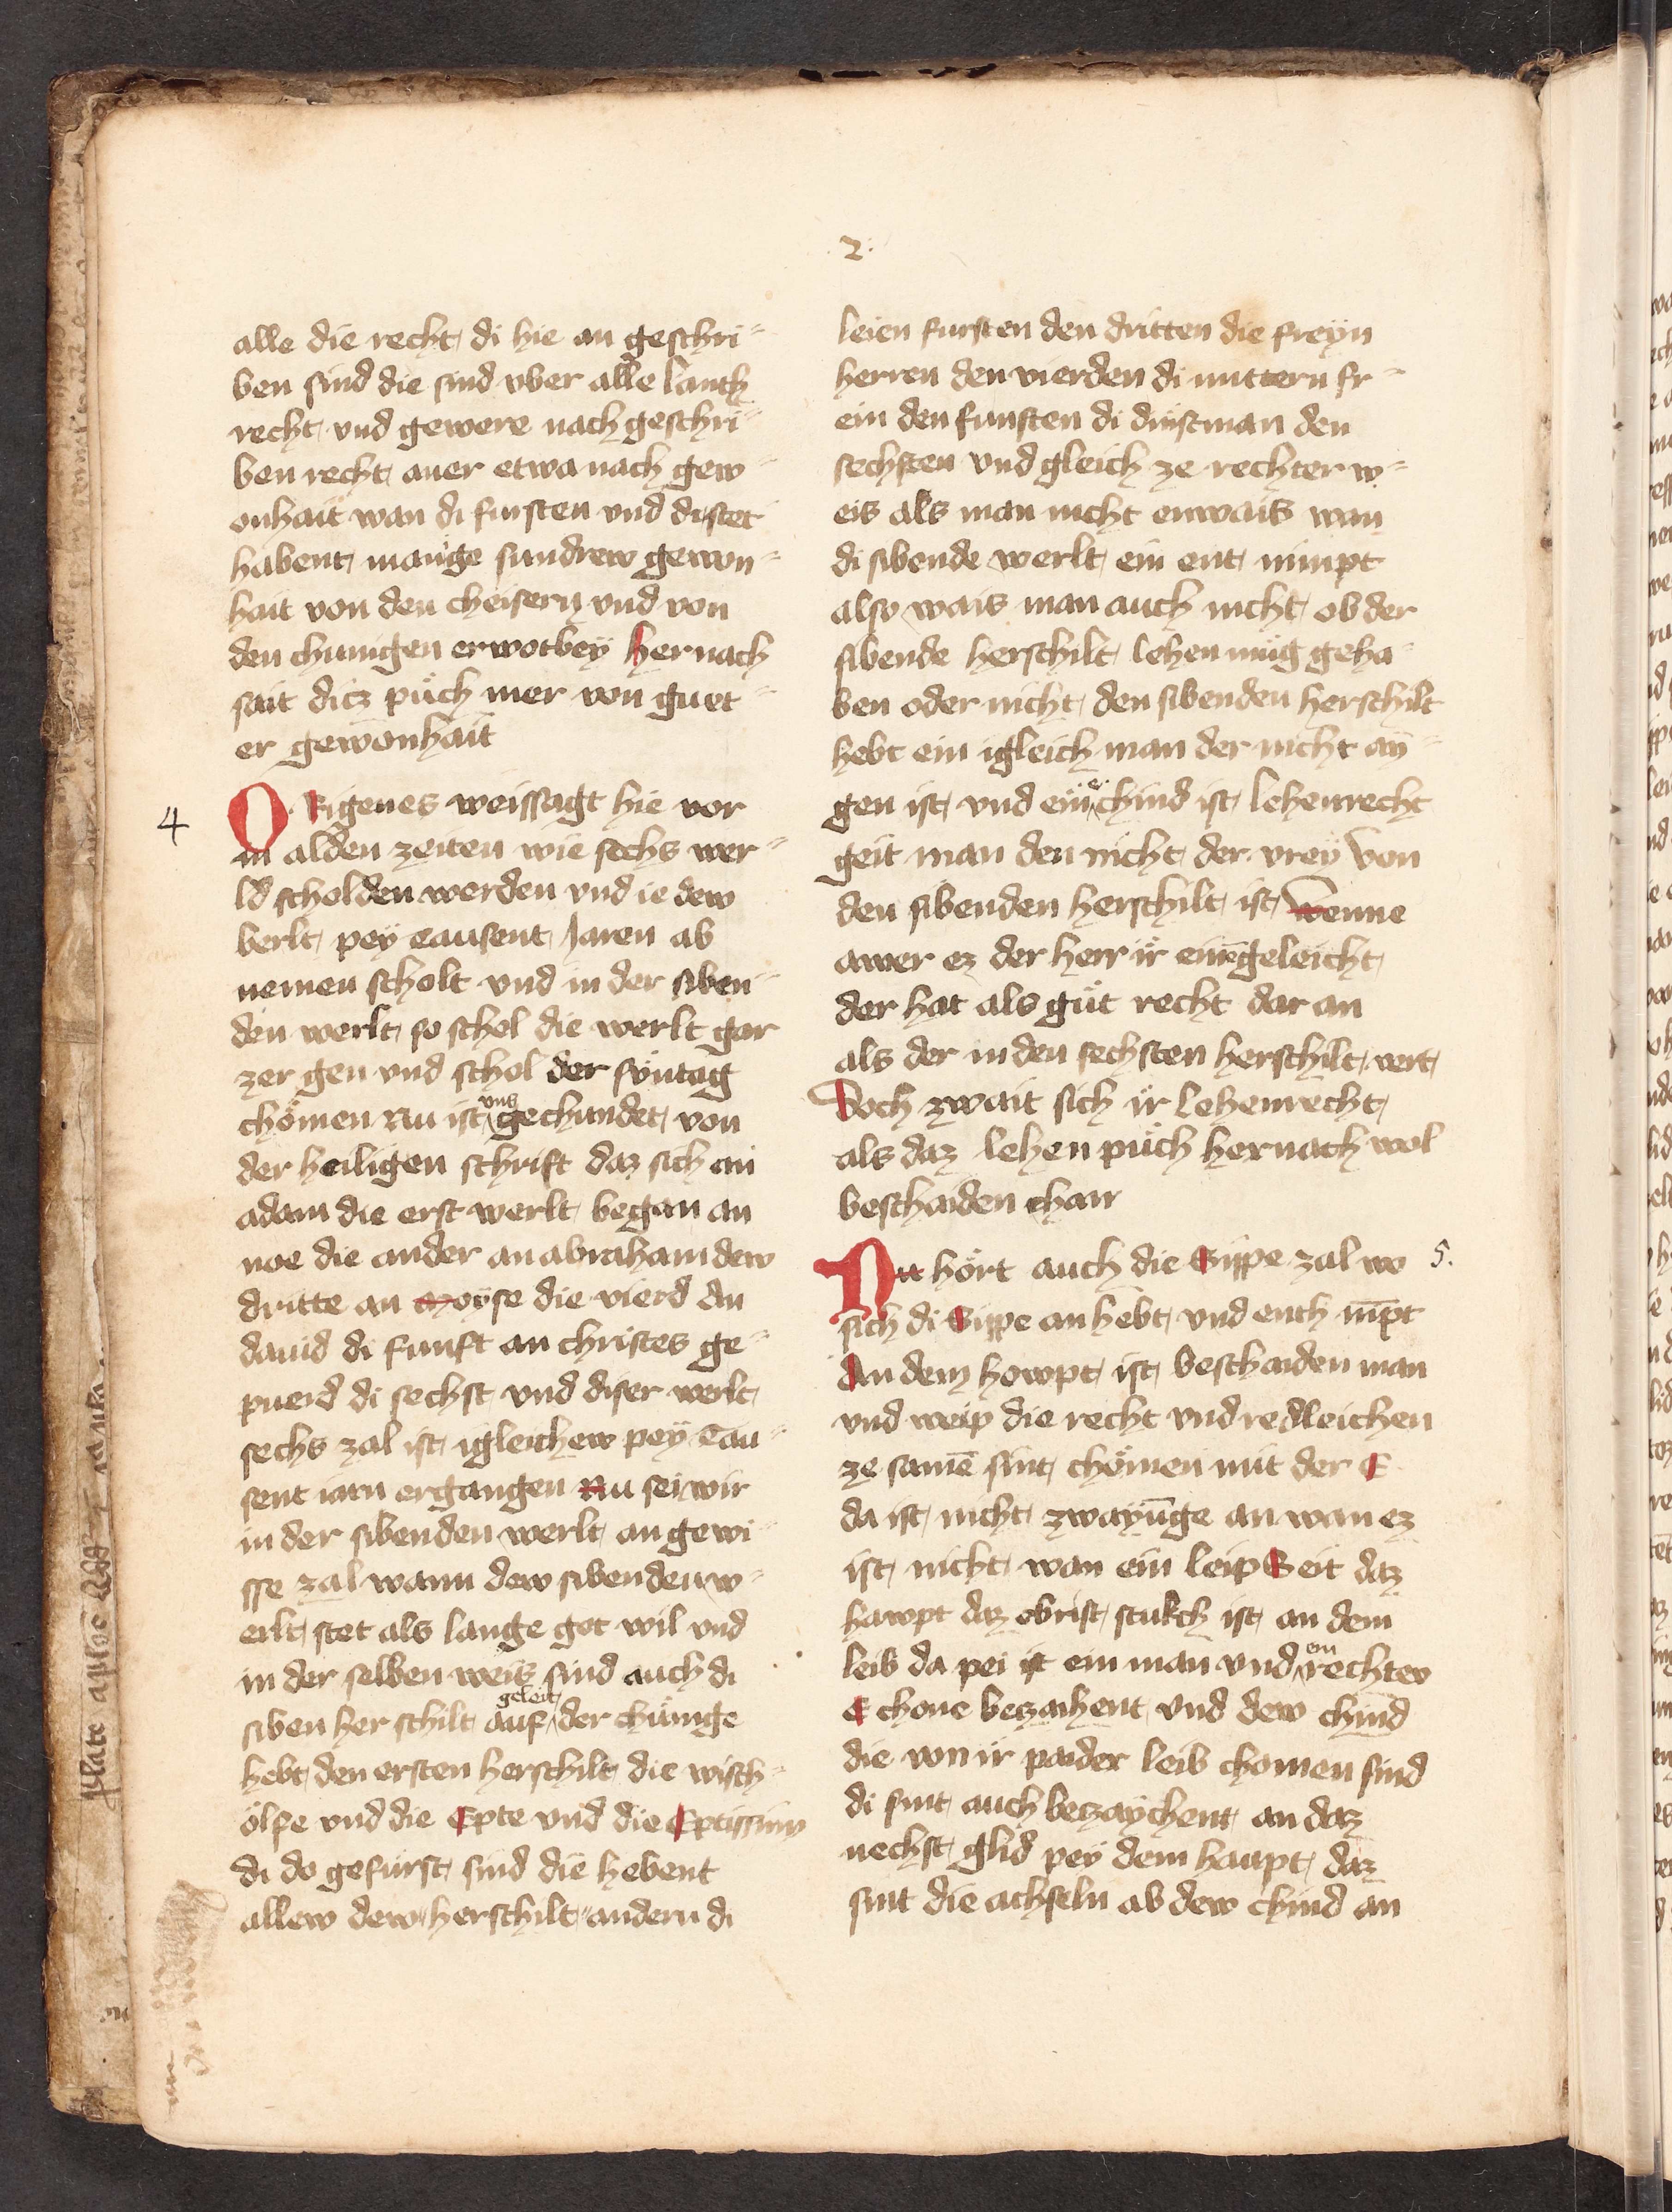 2.
alle die recht di hie an geschri-
ben sind die sind vber alle lanth
recht vnd gewere nach geschri-
ben recht auer etwa nach gew-
onhait wan di fursten vnd di stet
habent manige sundrew gewon-
hait von den cheisern vnd von
den chunigen erworbey hernach
sait dicz puͦch mer von guet-
er gewonhait
4
ORigenes weissagt hie vor
in alden zeiten wie sechs wer-
ld scholden werden vnd ie dew
berlt peÿ tausent Jaren ab
nemen scholt vnd in der siben-
den werlt so schol die werlt gar
zer gen vnd schol der sontag
chömen Nu ist vns gechundet von
der heiligen schrift daz sich an
adam die erst werlt began an
noe die ander an abraham dew
dritte an moÿse die vierd An
dauid di funft an christes ge-
puerd di sechst vnd diser werlt
sechs zal ist igleichew peÿ Tau-
sent iarn ergangen Nu sei wir
in der sibenden werlt an gewi-
sse zal wann dew sibenden w-
erlt stet als lange got wil vnd
in der selben weis sind auch di
siben her schilt auf geleit der chünige
hebt den ersten herschilt die wisch-
ölfe vnd die Epte vnd die Eptissinn
di do gefürst sind die hebent
allew dew herschilt andern di
leien fursten den dritten die freÿn
herren den vierden di mittern fr-
ein den funften di dinstman den
sechsten vnd gleich ze rechter w-
eis als man nicht enwais wan
di sibende werlt ein ent nimpt
also wais man auch nicht ob der
sibende herschilt lehen müg geha-
ben oder nicht den sibenden herschilt
hebt ein igleich man der nicht aÿ-
gen ist vnd ein e chind ist lehenrecht
geit man den nicht der vreÿ von
den sibenden herschilt ist Wenne
awer ez der herr ir einē geleicht
der hat als guͦt recht dar an
als der in den sechsten herschilt vert
Doch zwait sich ir lehenrecht
als daz lehen puͦch hernach wol
beschaiden chan
5.
Nu hört auch die Sippe zal wo
sich di Sippe an hebt vnd enth nīpt
An dem howpt ist beschaiden man
vnd weip die recht vnd redleichen
ze samē sint chömen mit der E
da ist nicht zwayūge an wan ez
ist nicht wan ein leip Seit daz
hawpt daz obrist stukch ist an dem
leib da pei ist ein man vnd ein rechtev
E chone bezaihent vnd dew chind
die von ir paider leib chomen sind
di sint auch bezaÿchent an daz
nechst glid peÿ dem haupt daz
sint die achseln ab dew chind an